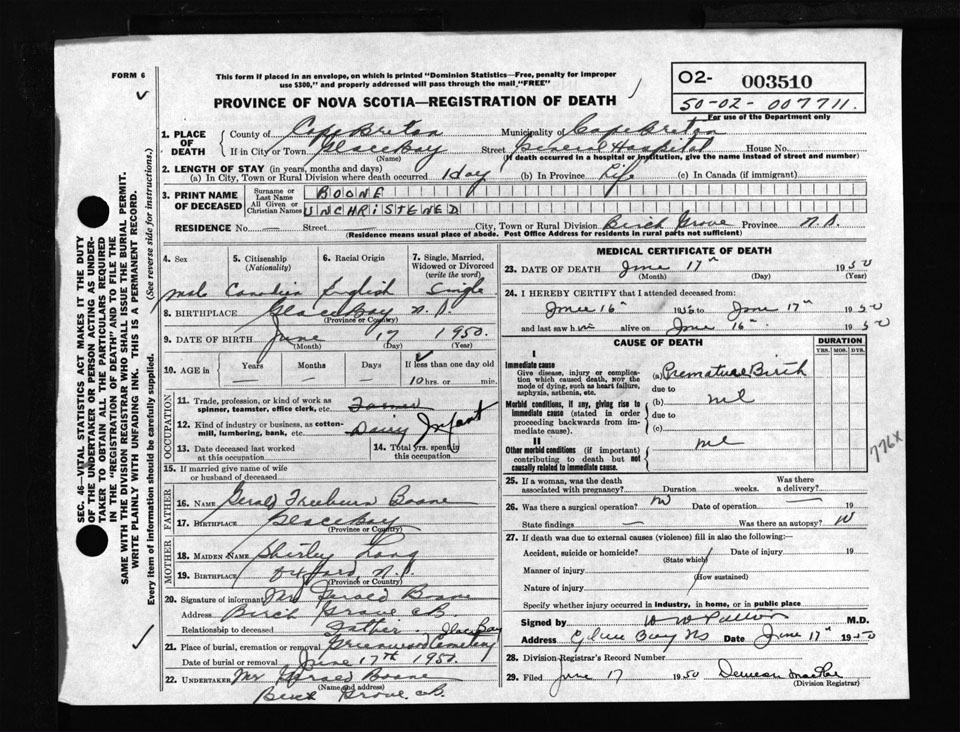 FORM 6
This form if placed in an envelope, on which is printed "Dominion Statistics—Free, penalty for improper
use $300," and properly addressed will pass through the mail "FREE"
PROVINCE OF NOVA SCOTIA—REGISTRATION OF DEATH
O2- 003510
50-02-007711.
For use of the Department only
1. PLACE OF DEATH
County of Cape Breton Municipality of Cape Breton
If in City or Town Glace Bay Street General Hospital House No.
(Name) (If death occurred in a hospital or institution, give the name instead of street and number)
2. LENGTH OF STAY (in years, months and days)
(a) In City, Town or Rural Division where death occurred 1 day (b) In Province Life (c) In Canada (if immigrant)
3. PRINT NAME OF DECEASED
Surname or Last Name BOONE
All Given or Christian Names UNCHRISTENED
RESIDENCE No. — Street — City, Town or Rural Division Birch Grove Province N.S.
(Residence means usual place of abode. Post Office Address for residents in rural parts not sufficient)
4. Sex male
5. Citizenship (Nationality) Canadian
6. Racial Origin English
7. Single, Married, Widowed or Divorced (write the word) Single
8. BIRTHPLACE Glace Bay N.S.
(Province or Country)
9. DATE OF BIRTH June 17 1950.
(Month) (Day) (Year)
10. AGE in Years — Months — Days — If less than one day old
10 hrs. or min.
OCCUPATION
11. Trade, profession or kind of work as spinner, teamster, office clerk, etc. Farmer
12. Kind of industry or business, as cotton-mill, lumbering, bank, etc. Dairy Infant
13. Date deceased last worked at this occupation
14. Total yrs. spent in this occupation
15. If married give name of wife or husband of deceased
FATHER
16. NAME Gerald Freeburn Boone
17. BIRTHPLACE Glace Bay
(Province or Country)
MOTHER
18. MAIDEN NAME Shirley Long
19. BIRTHPLACE Oxford N.S.
(Province or Country)
20. Signature of informant Mr Gerald Boone
Address Birch Grove CB.
Relationship to deceased Father
21. Place of burial, cremation or removal Greenwood Cemetery Glace Bay
Date of burial or removal June 17th 1950.
22. UNDERTAKER Mr Gerald Boone
(Name and address)
Birch Grove CB.
MEDICAL CERTIFICATE OF DEATH
23. DATE OF DEATH June 17th 1950
(Month) (Day) (Year)
24. I HEREBY CERTIFY that I attended deceased from:
June 16th 1950 to June 17th 1950
and last saw him alive on June 16th 1950
CAUSE OF DEATH
DURATION
YRS. MOS. DYS.
I
Immediate cause
Give disease, injury or complication which caused death, NOT the mode of dying, such as heart failure, asphyxia, asthenia, etc.
(a) Premature Birth
due to
Morbid conditions, if any, giving rise to immediate cause (stated in order proceeding backwards from immediate cause).
(b) nil
due to
(c)
II
Other morbid conditions (if important) contributing to death but not causally related to immediate cause.
nil
776x
25. If a woman, was the death associated with pregnancy? Duration weeks. Was there a delivery?
26. Was there a surgical operation? No Date of operation — 19
State findings — Was there an autopsy? No
27. If death was due to external causes (violence) fill in also the following:—
Accident, suicide or homicide? Date of injury 19
(State which)
Manner of injury
(How sustained)
Nature of injury
Specify whether injury occurred in industry, in home, or in public place
Signed by M.D.
Address Glace Bay NS Date June 17th 1950
28. Division Registrar's Record Number
29. Filed June 17 1950
(Division Registrar)
SEC. 46—VITAL STATISTICS ACT MAKES IT THE DUTY
OF THE UNDERTAKER OR PERSON ACTING AS UNDER-
TAKER TO OBTAIN ALL THE PARTICULARS REQUIRED
IN THE "REGISTRATION OF DEATH" AND TO FILE THE
SAME WITH THE DIVISION REGISTRAR WHO SHALL ISSUE THE BURIAL PERMIT.
WRITE PLAINLY WITH UNFADING INK. THIS IS A PERMANENT RECORD.
Every item of information should be carefully supplied. (See reverse side for instructions.)